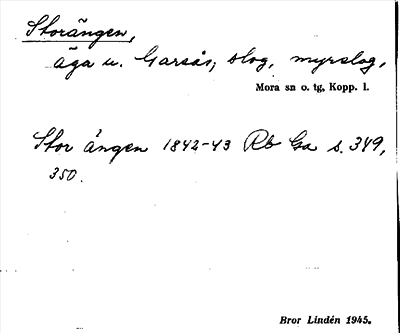 Storängen,
äga u. Garsås, slog, myrslog,
Mora sn o. tg, Kopp. l.
Stor ängen 1842-43 Rb Ga s. 349,
350.
Bror Lindén 1945.